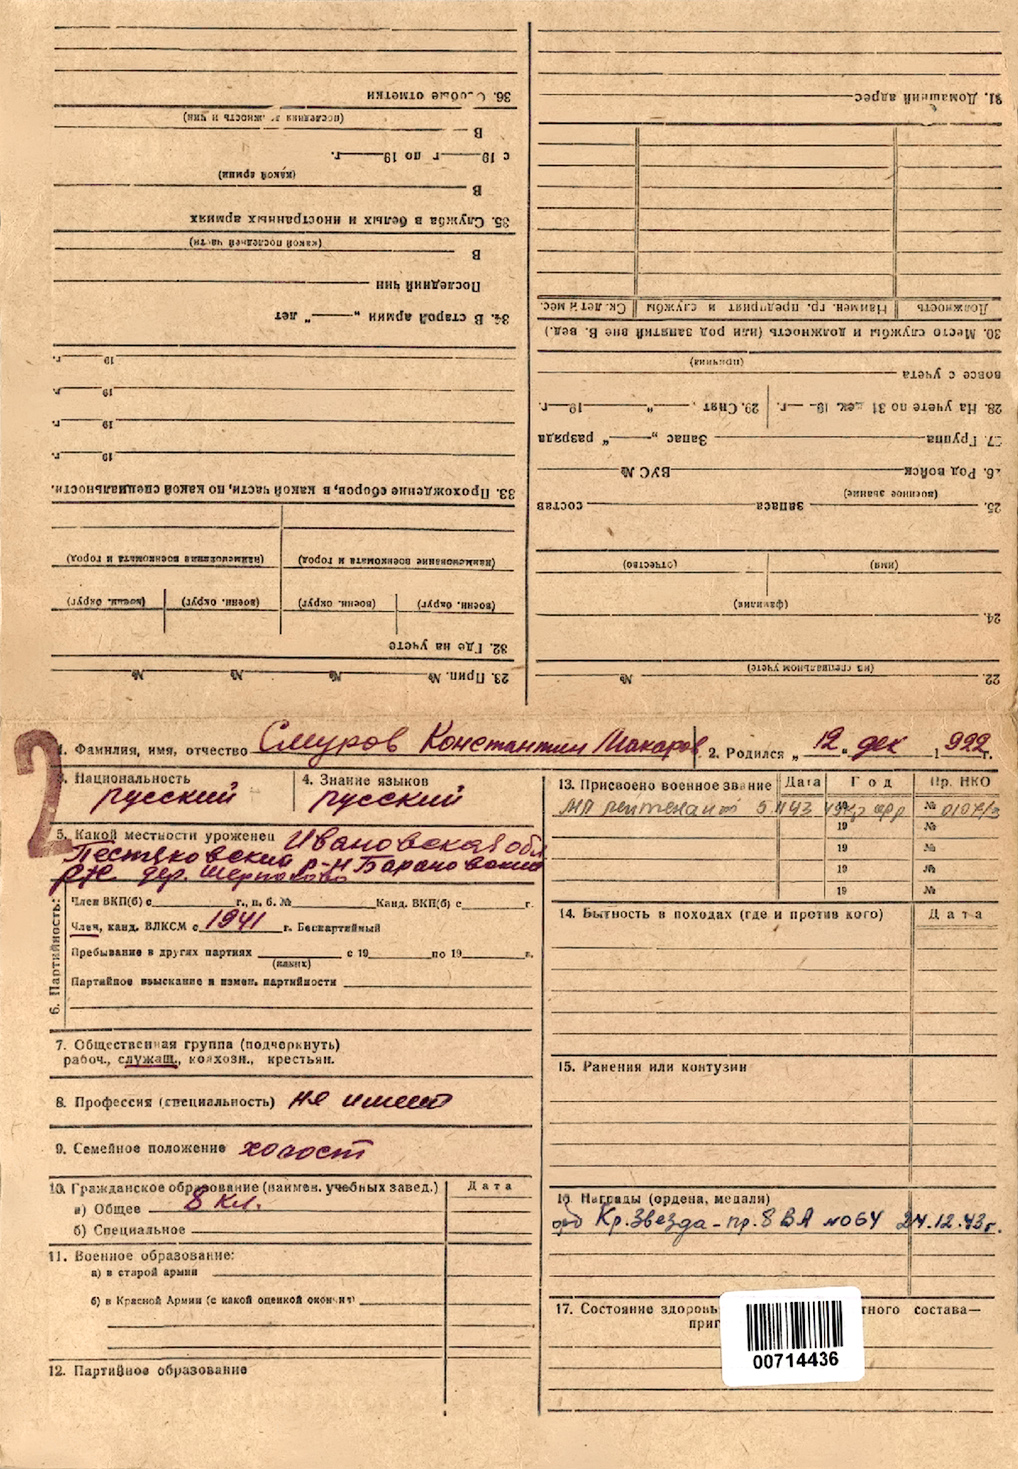 36. Особые отметки
(последняя должность и чин)
В
с 19 г по 19 г.
(какой армии)
В
35. Служба в белых и иностранных армиях
(какой последней части)
В
Последний чин
34. В старой армии „ “ лет
19 г.
19 г.
19 г.
19 г.
33. Прохождение сборов, в какой части, по какой специальности.
(наименование военкомата и город) (наименования военкомата и город)
(воен. округ) (воен. округ) (воен. округ) (воен. округ)
32. Где на учете
23. Прип. № № № №
31. Домашний адрес
Должность Наимен. гр. предприят и службы Ск. лет и мес.
30. Место службы и должность (или род занятий вне В. вед.)
(причина)
вовсе с учета
28. На учете по 31 дек. 19 г. 29. Снят „ “ 19 г.
27. Группа Запас „ “ разряда
26. Род войск ВУС №
(военное звание)
25. запаса состав
(имя) (отчество)
(фамилия)
24.
(на специальном учете)
22. №
2
1. Фамилия, имя, отчество Смуров Константин Макаров. 2. Родился „ 12 “ дек 1922 г.
3. Национальность русский
4. Знание языков русский
5. Какой местности уроженец Ивановская обл
Пестяковский р-н Барановский
дер.
6. Партийность:
Член ВКП(б) с г., п. б. № Канд. ВКП(б) с г.
Член, канд. ВЛКСМ с 1941 г. Беспартийный
Пребывание в других партиях с 19 по 19 г.
(каких)
Партийное взыскание и измен. партийности
7. Общественная группа (подчеркнуть)
рабоч., служащ., колхозн., крестьян.
8. Профессия (специальность) не имеет
9. Семейное положение холост
10. Гражданское образование (наимен. учебных завед.) Дата
а) Общее 8 кл.
б) Специальное
11. Военное образование:
а) в старой армии
б) в Красной Армии (с какой оценкой окончил)
12. Партийное образование
13. Присвоено военное звание Дата Год Пр. НКО
мл лейтенант №
19 №
19 №
19 №
19 №
14. Бытность в походах (где и против кого) Дата
15. Ранения или контузии
16. Награды (ордена, медали)
орд Кр.Звезда - пр. 8 ВА №064 24.12.43г.
17. Состояние здоровь тного состава—
приг
00714436